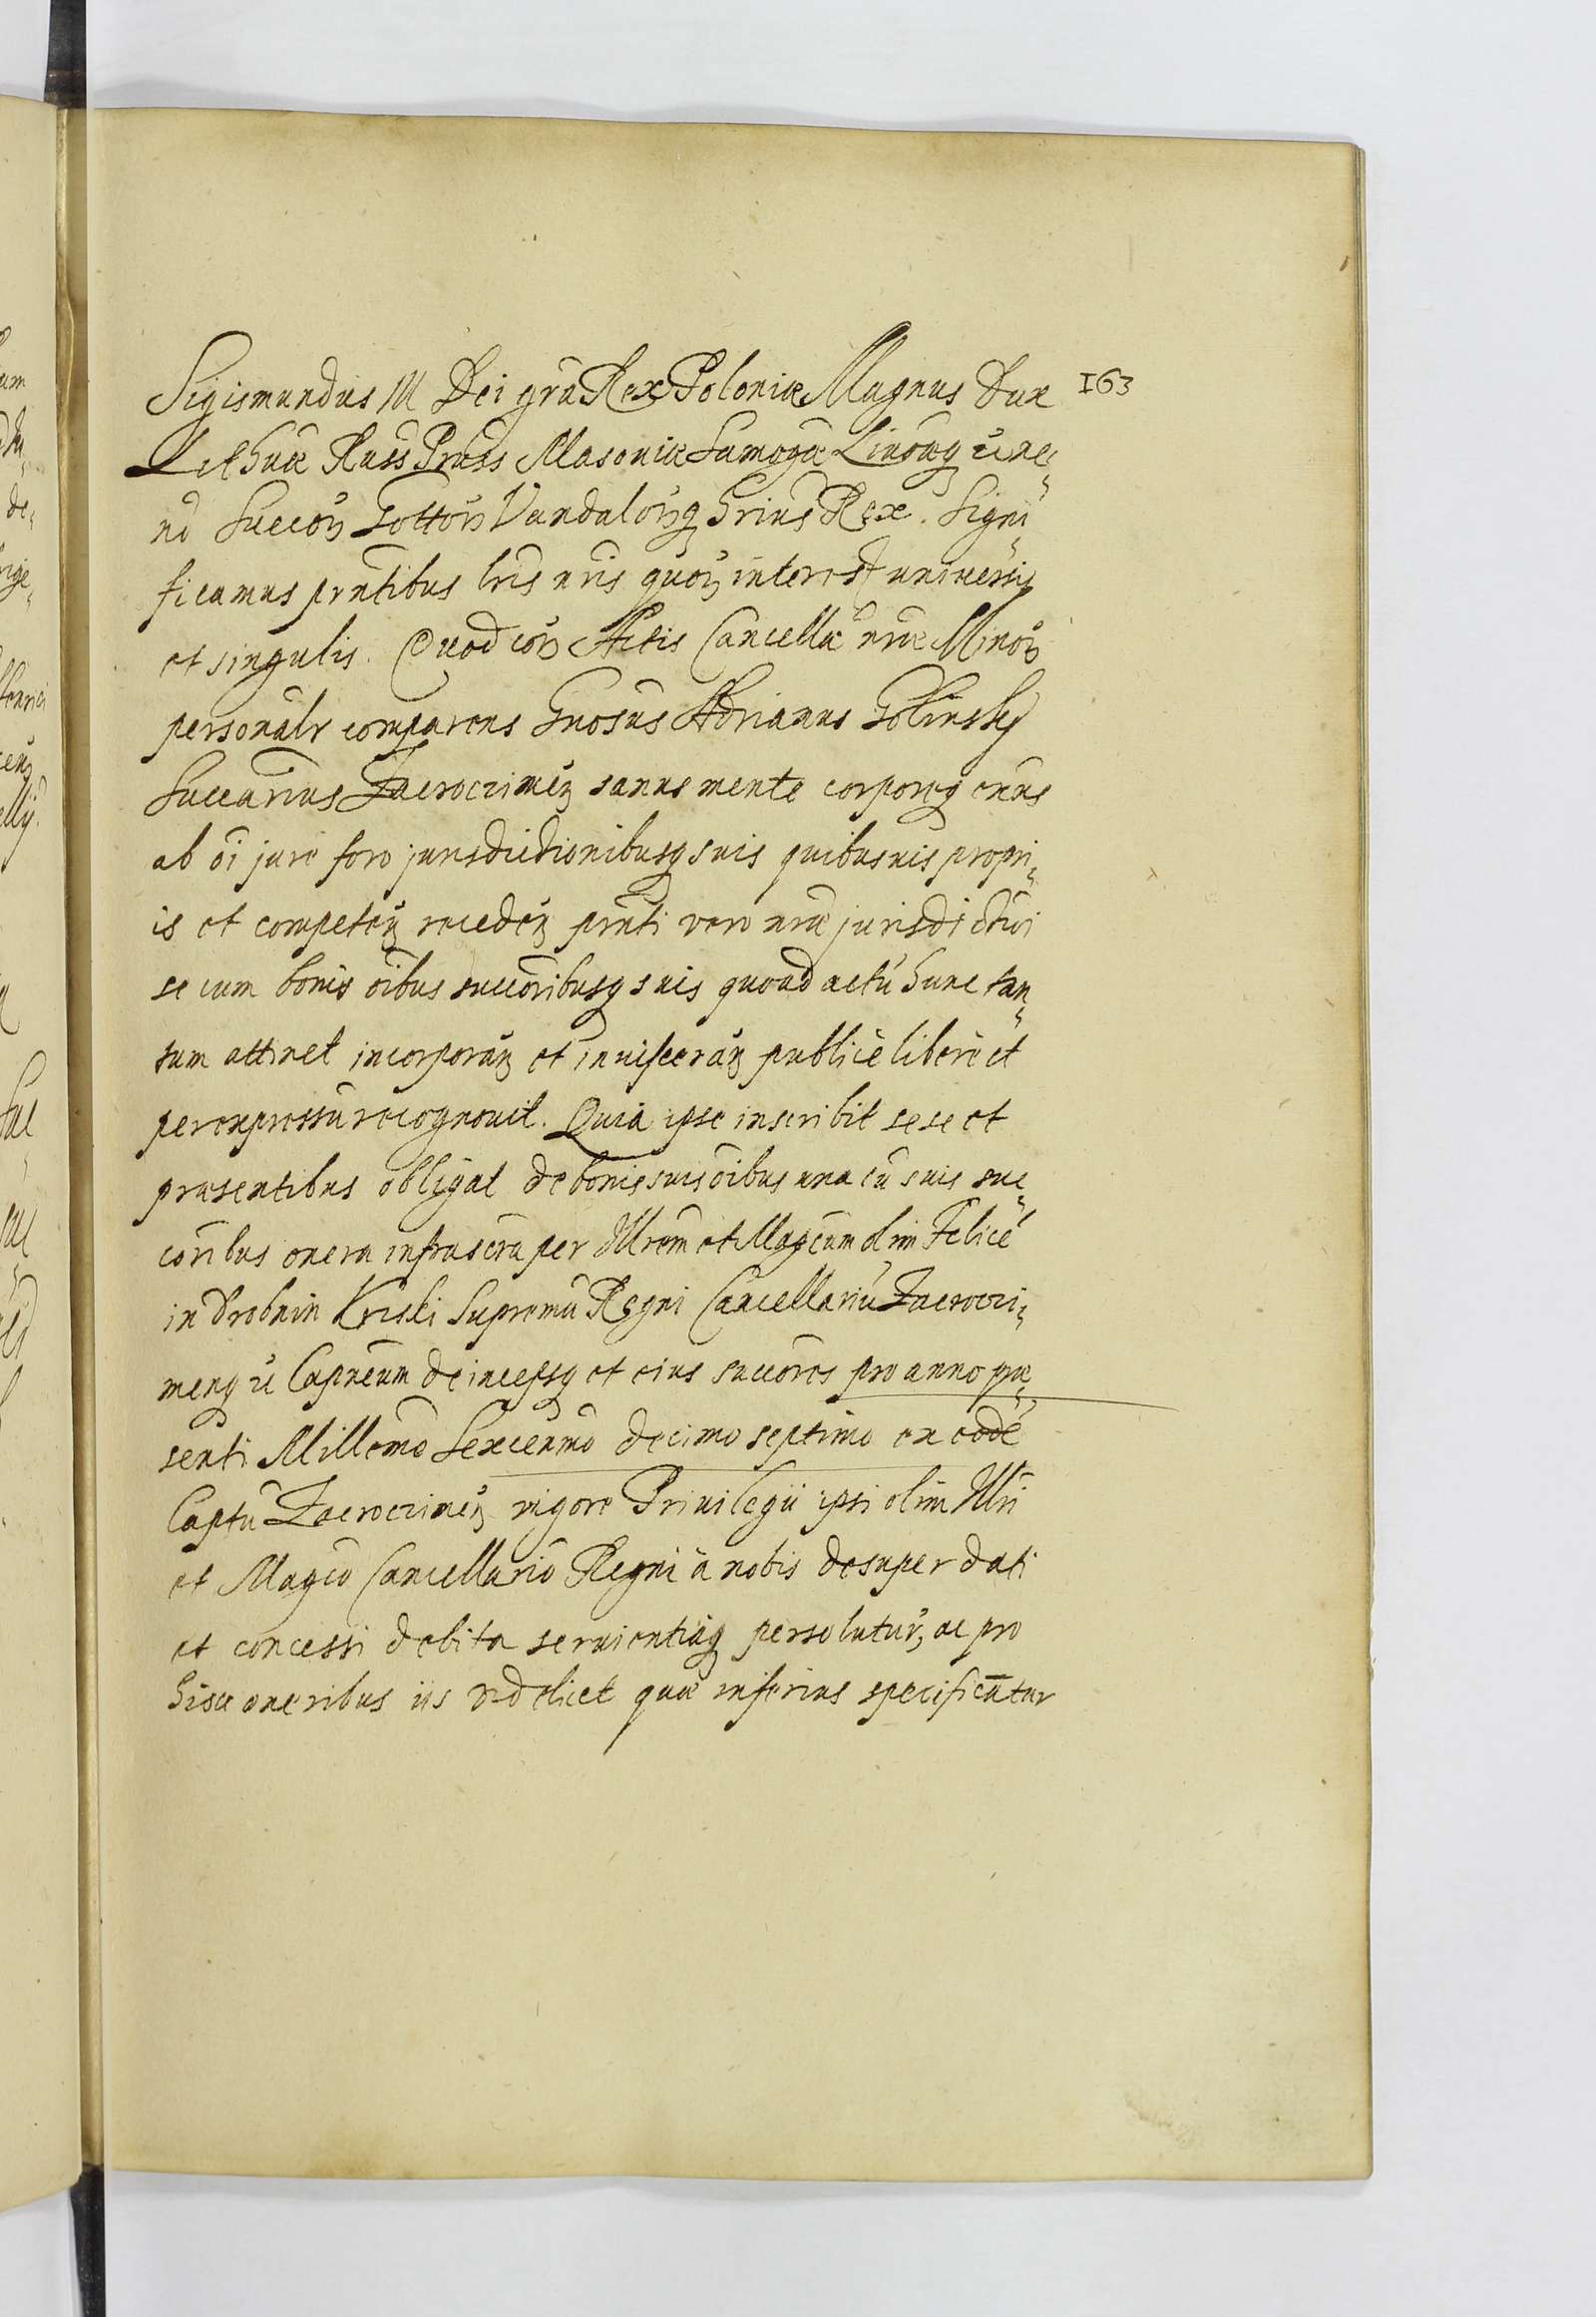 163
Sigismundus III Dei gra Rex Poloniæ Magnus Dux
Lithuæ Russ Pruss Masoniæ Samogæ Livonq̃ nec
nõ Suecoꝝ Gottoꝝ Vandaloꝝq̃ hrius Rex. Signi„
ficamus prntibus lris nris quoꝝ interest universis
et singulis. Quod coꝝ Actis Cancellæ nræ Minoꝝ
personalr comparens Gnosus Adrianus Golinsky
Succarius Zacrocimeñ sanus mente corporeq̃ exns
ab oi jure foro jurisdictionibusq̃ suis quibusuis propri„
is et competeñ recedeñ prnti vero nræ jurisdictioni
se cum bonis oibus succoribusq̃ suis quoad actũ hunc tan„
tum attinet incorporañ et inuisceráñ publice libere et
per expressũ recognouit. Quia ipse inscribit sese et
præsentibus obligat de bonis suis oibus una cũ suis suc„
coribus onera infrascra per Illrem et Magcum olim Felicẽ
in Drobnin Kriski Supremũ Regni Cancellariũ Zacroczi„
menq̃ Capneum deincepsq̃ et eius succores pro anno præ„
senti Millemo Sexcenmo decimo septimo ex eodẽ
Captu Zacroczimeñ vigore Priuilegii ipsi olim Illri
et Magco Cancellario Regni à nobis desuper dati
et concessi debita seruientiaq̃ persolutur, ac pro
hisce oneribus iis videlicet quæ inferius specificantur